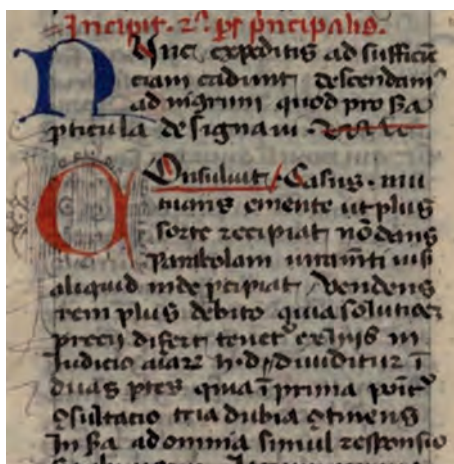 Incipit .2ª. ps pͥncipalis.
Nunc expeditis ad sufficiē
ciam cadunt descendam᷒
ad nigrum quod pro s̄a
pticula designaui
Onsuluit / Casus . mu
tuans emente ut plus
sorte recipiat nō dans
Parabolam iuram̄ti nisi
aliquid inde pcipiat / vendens
rem plus debito quia solutiōez
precii difert tenet᷒ ex hiis in
Iudicio aīarꝝ h·d / diuiditur ī
duas ptes quia ī prima poīt᷒
ꝯsultatio tria dubia ꝯtinens
In s̄a ad omnia simul responsio